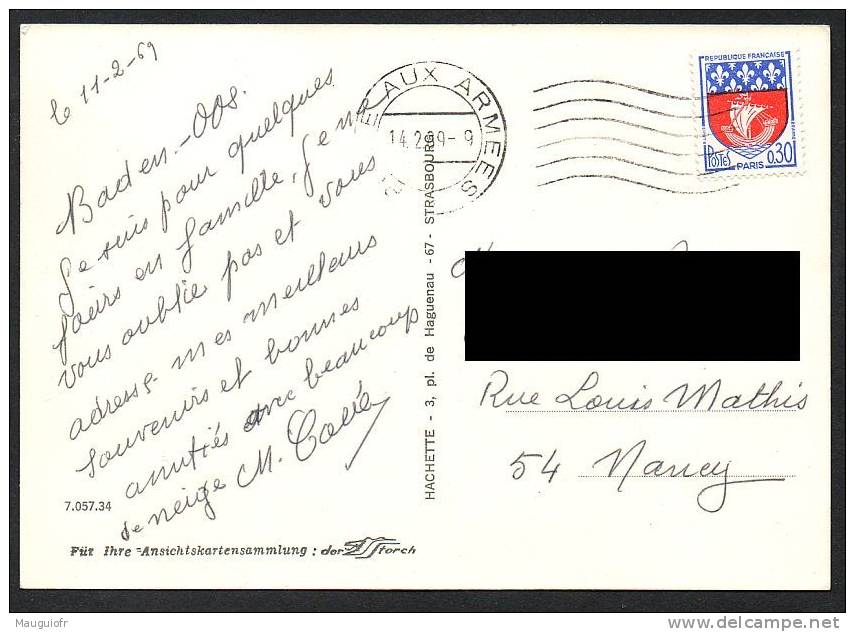 le 11-2-69
Baden-Oos.
Je suis pour quelques
jours en famille, je ne
vous oublie pas et vous
adresse mes meilleurs
souvenirs et bonnes
amitiés avec beaucoup
de neige M.
7.057.34
Für Ihre Ansichtskartensammlung : der Storch
HACHETTE - 3, pl. de Haguenau - 67 - STRASBOURG
AUX ARMEES
14.2.69-9
REPUBLIQUE FRANÇAISE
POSTES
PARIS
0,30
Rue Louis Mathis
54 Nancy
Mauguiofr
delcampe.net